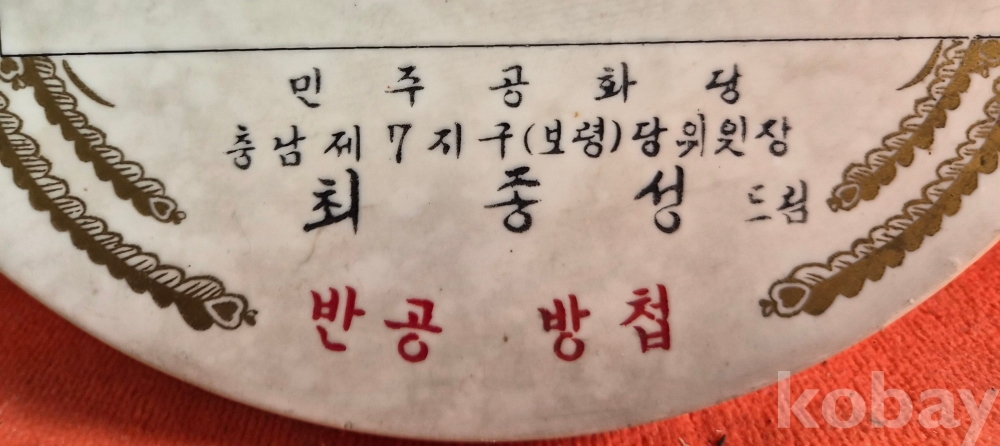 민주공화당
충남제7지구(보령)당위윗장
최종성 드림
반공 방첩
kobay